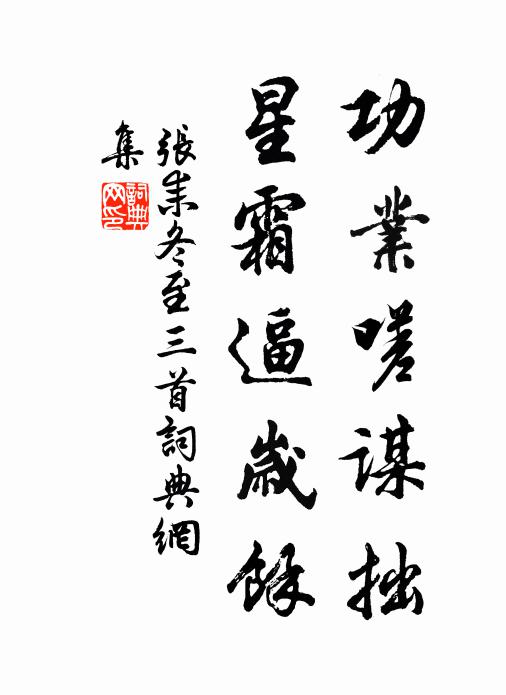 功業嗟謀拙
星霜逼歲餘
張耒冬至三首詞典網
集
詞典
网印